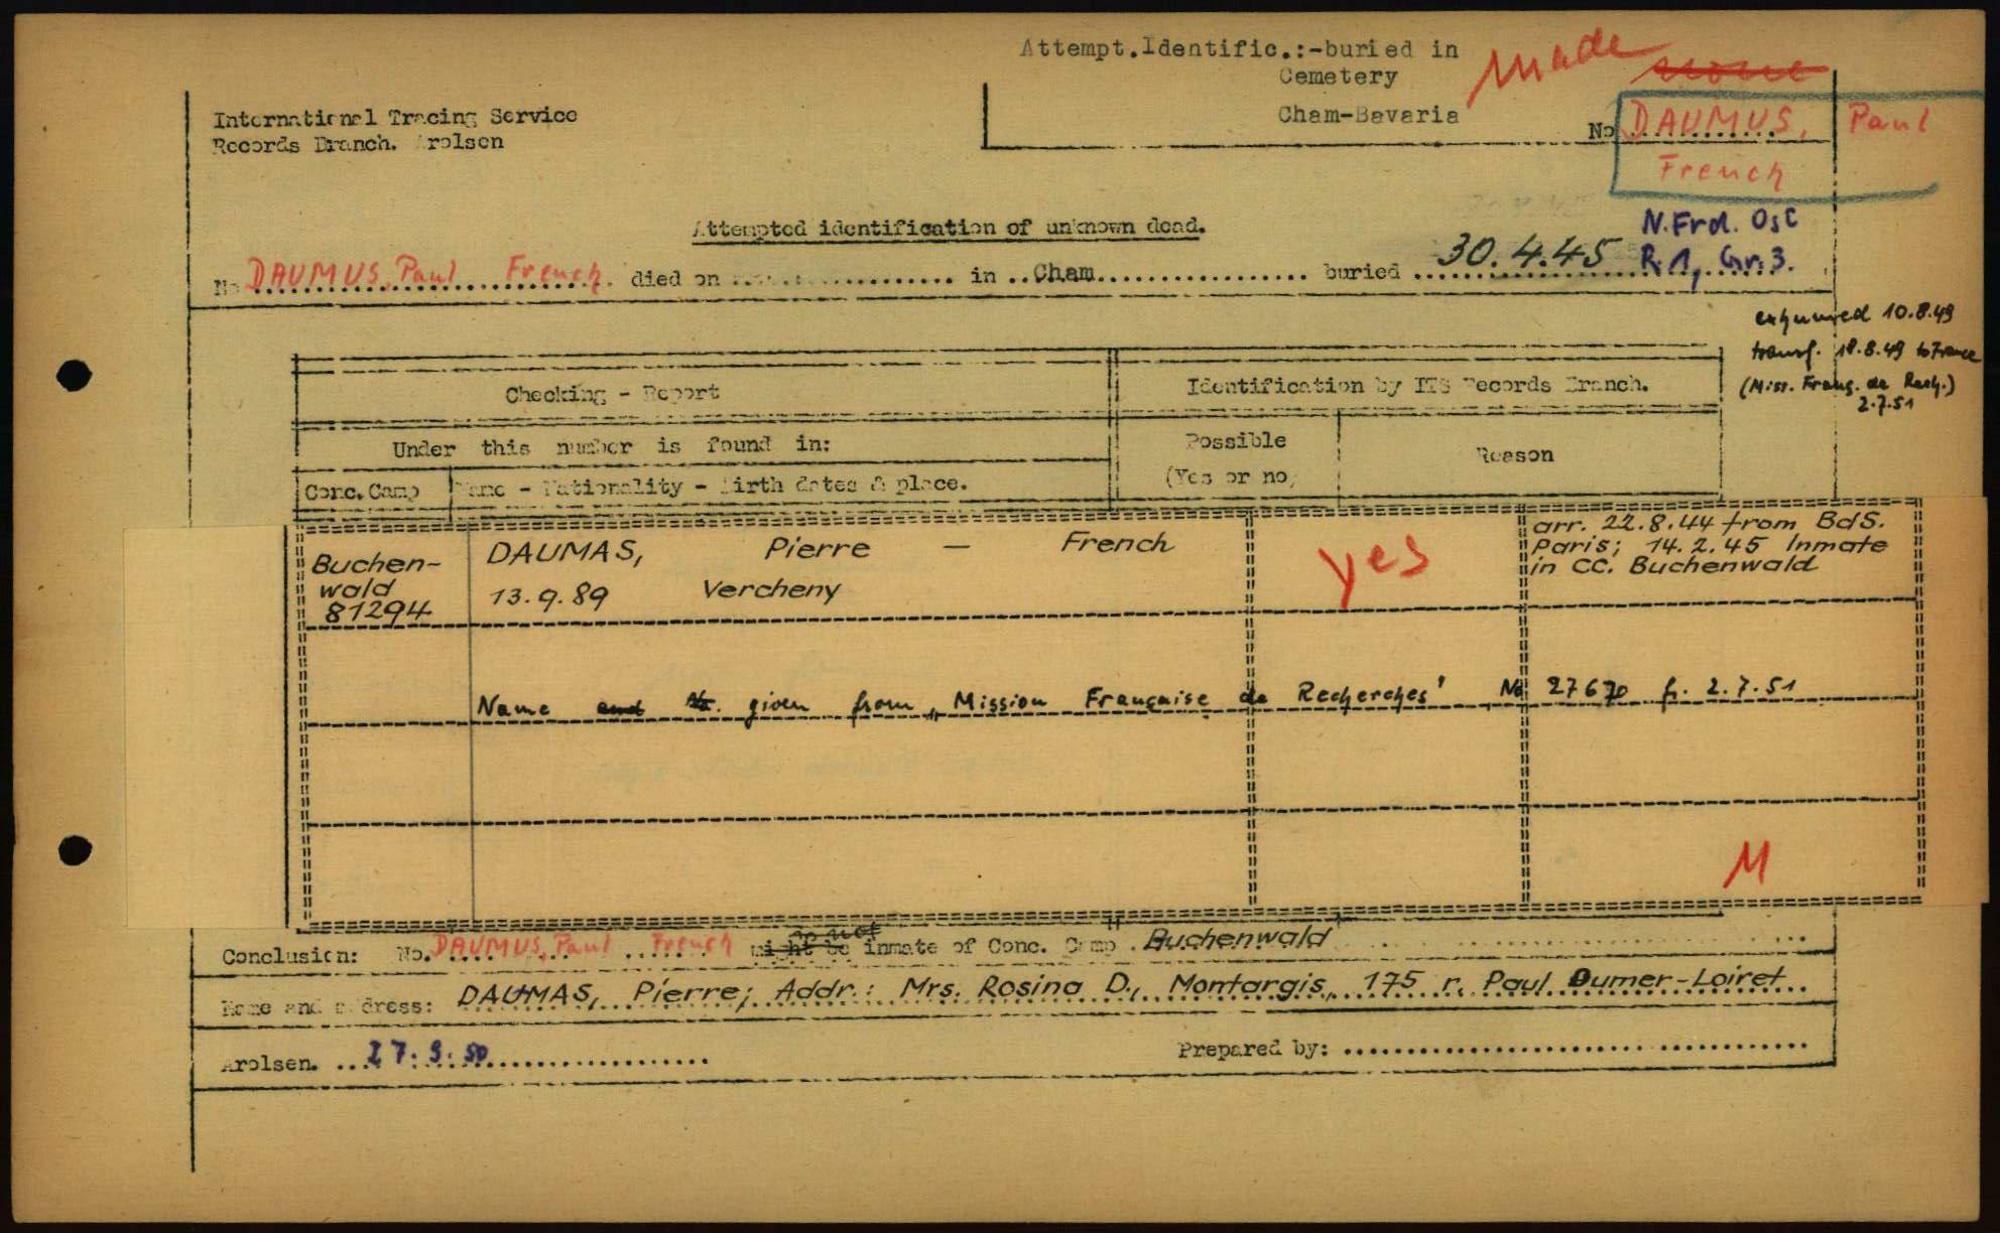 Attempt.Identific.:-buried in made
Cemetery
Cham-Bavaria
No DAUMUS, Paul
French
International Tracing Service
Records Branch. Arolsen
Attempted identification of unknown dead.
N.Frd. OsC
No DAUMUS, Paul French. died on .......... in ..Cham.......... buried 30.4.45 R.1, Gr.3.
exhumed 10.8.49
transf. 18.8.49 to France
(Miss. Franç. de Rech.)
2.7.51
Checking - Report Identification by ITS Records Branch.
Under this number is found in: Possible
(Yes or no) Reason
Conc.Camp Name - Nationality - Birth dates & place.
Buchen-
wald
81294
DAUMAS, Pierre — French
13.9.89 Vercheny
yes
arr. 22.8.44 from BdS.
Paris; 14.2.45 Inmate
in CC. Buchenwald
Name and No. given from „Mission Française de Recherches" No 27670 fr. 2.7.51
M
Conclusion: No. DAUMUS, Paul French might be inmate of Conc. Camp Buchenwald
Name and address: DAUMAS, Pierre; Addr.: Mrs. Rosina D., Montargis, 175 r. Paul Dumer-Loiret
Arolsen. 27.9.50 Prepared by: ..........